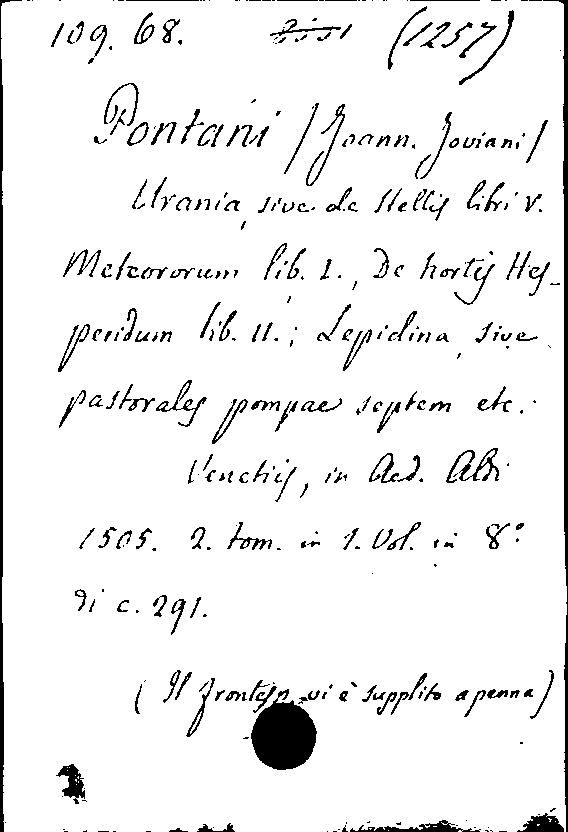 109. 68. (1257)
Pontani / Joann. Joviani /
Urania, sive de Stellis libri V.
Meteororum lib. I., De hortis Hes-
peridum lib. II.; Lepidina, sive
pastorales pompae septem etc.
Venetiis, in Aed. Aldi
1505. 2. tom. in 1. Vol. in 8°
di c. 291.
(Il frontesp. vi è supplito a penna)